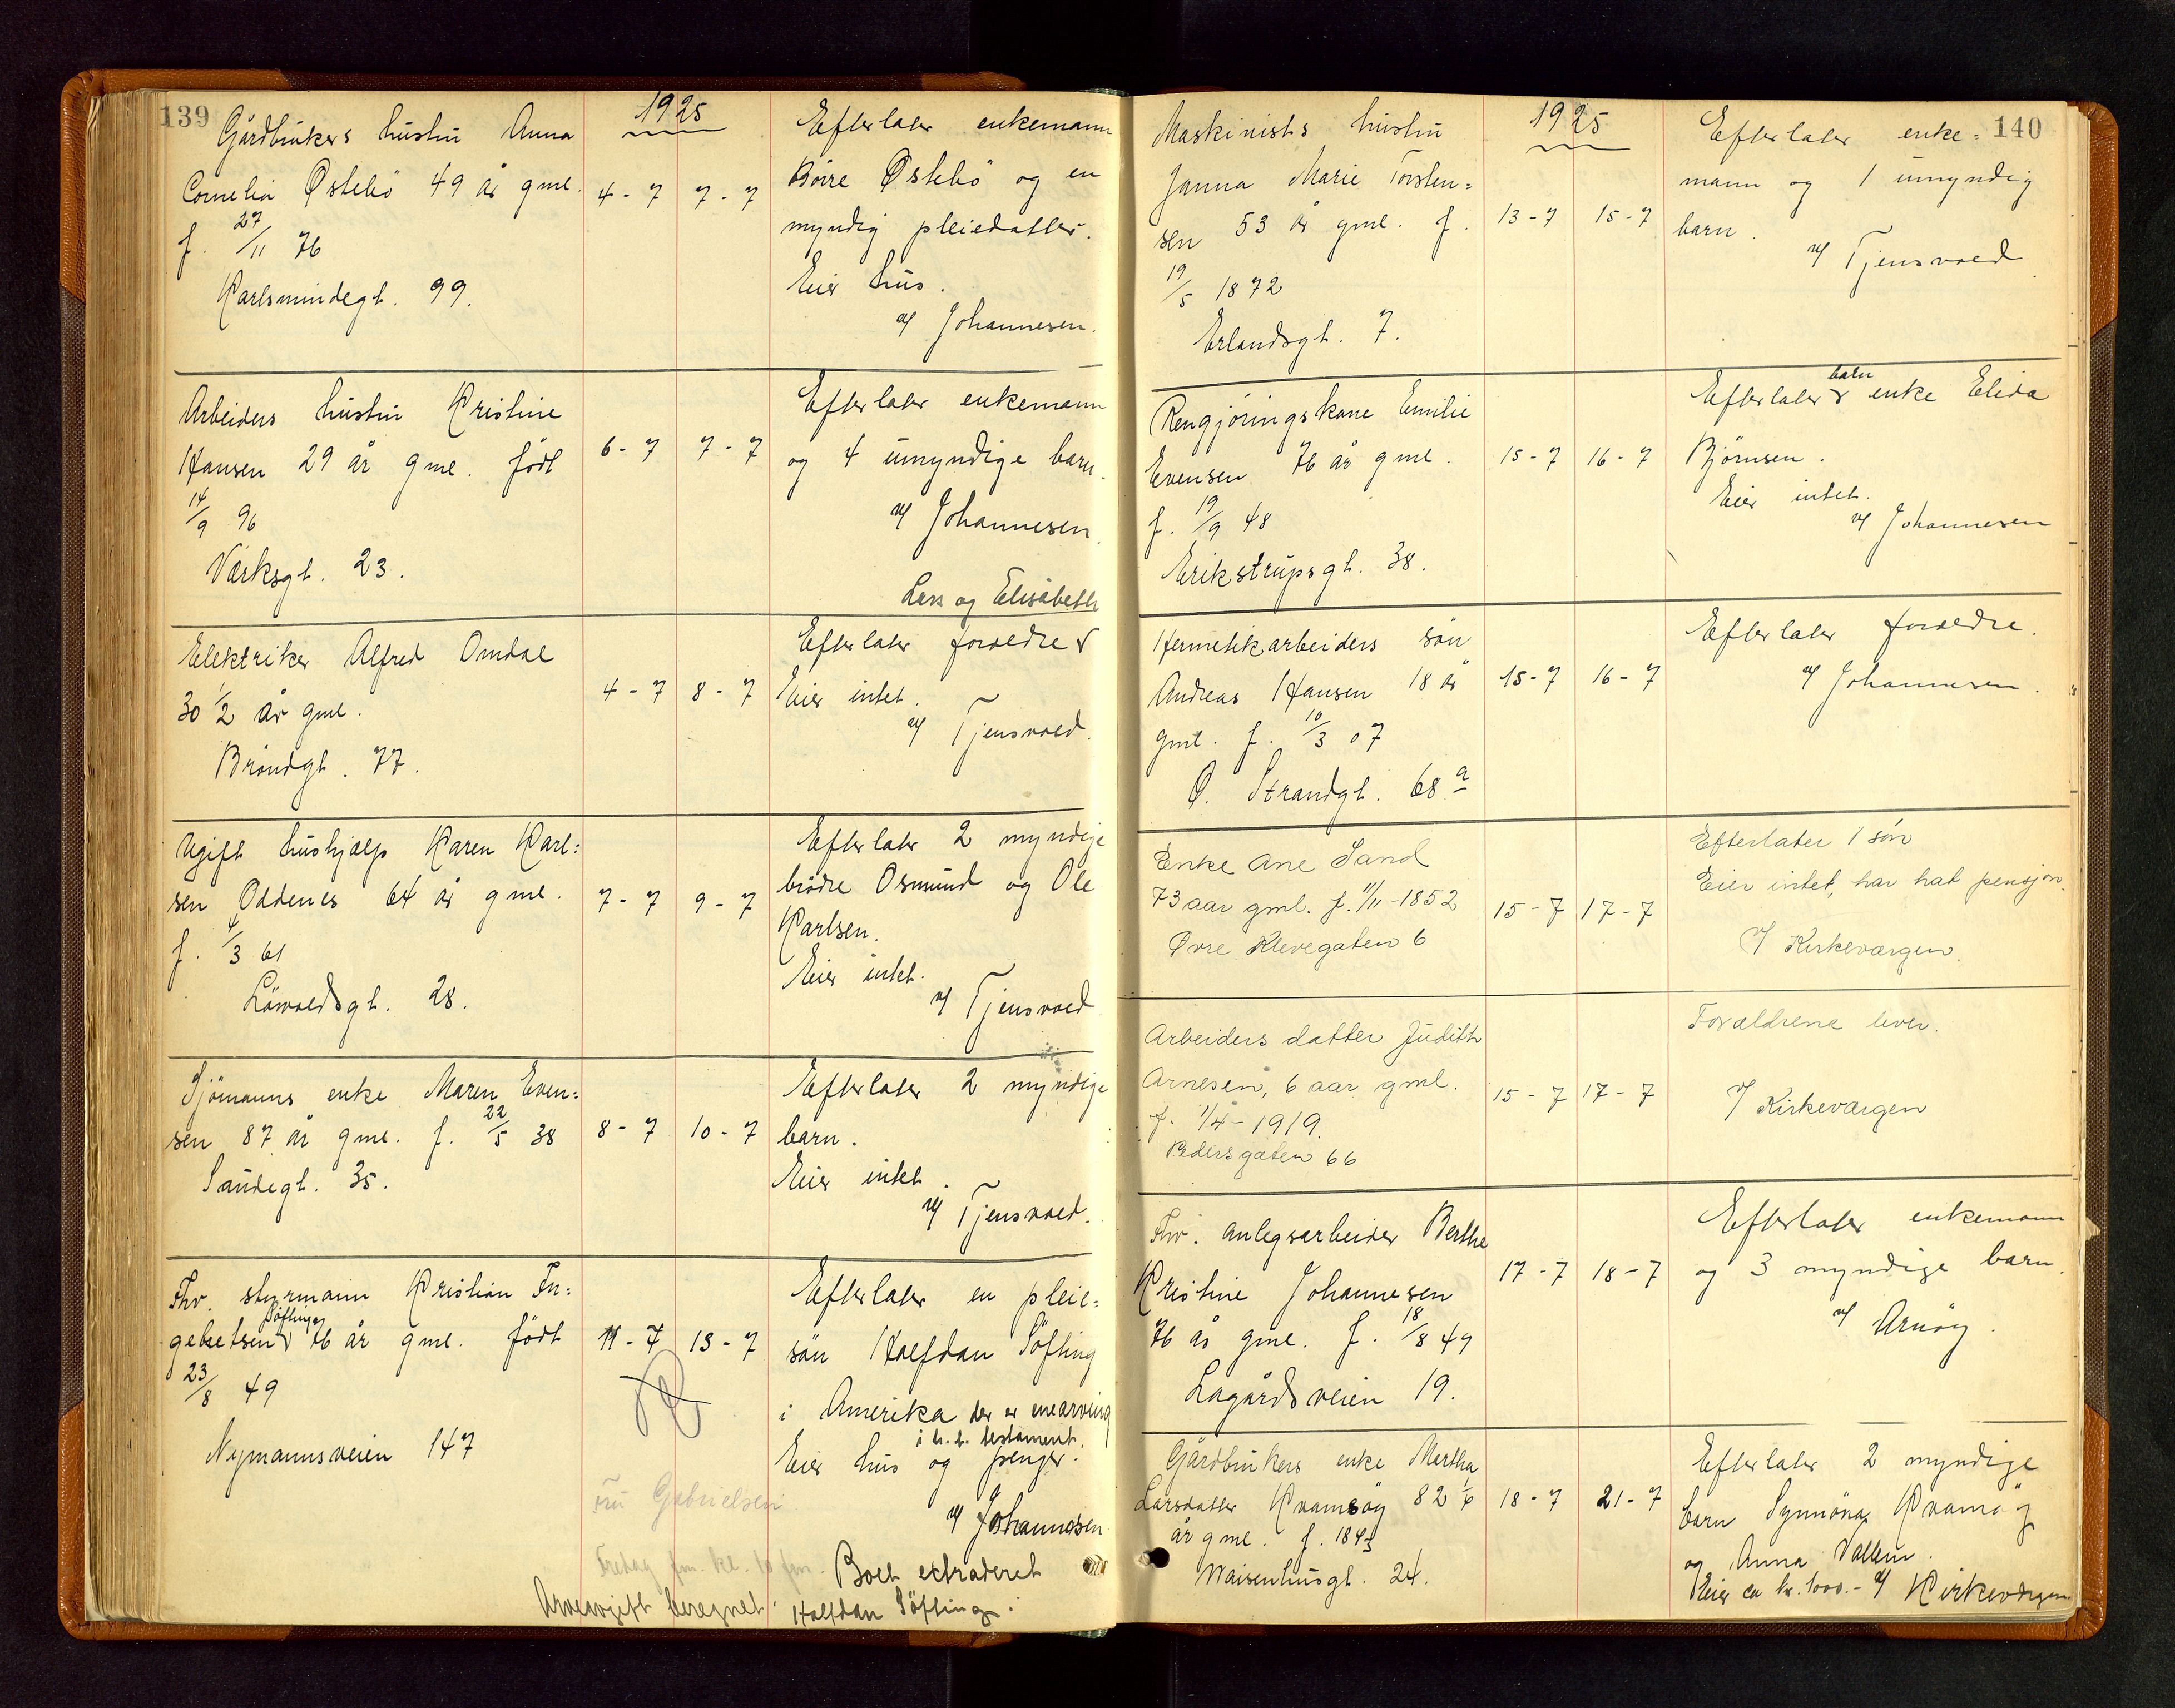 139
1925
Gårdbrukers hustru Anna
Cornelia Østebö 49 år gml.
f. 27/11 76
Karlsmindegt. 99.
4-7 7-7
Efterlater enkemann
Börre Østebö og en
myndig pleiedatter.
Eier hus.
v/ Johannesen.
Arbeiders hustru Kristine
Hansen 29 år gml. født
14/9 96
Værksgt. 23.
6-7 7-7
Efterlater enkemann
og 4 umyndige barn.
v/ Johannesen.
Elektriker Alfred Omdal
30 1/2 år gml.
Bröndgt. 77.
4-7 8-7
Lars og Elisabeth
Efterlater forældre
Eier intet.
v/ Tjensvold.
Ugift hushjælp Karen Karl=
sen Oddenes 64 år gml.
f. 4/3 61
Lövoldsgt. 28.
7-7 9-7
Efterlater 2 myndige
brödre Osmund og Ole
Karlsen.
Eier intet.
v/ Tjensvold
Sjömanns enke Maren Even=
sen 87 år gml. f. 22/5 38
Sandegt. 35.
8-7 10-7
Efterlater 2 myndige
barn.
Eier intet.
v/ Tjensvold.
Fhv. styrmann Kristian In=
gebretsen Söfting 76 år gml. født
23/8 49
Nymannsveien 147
11-7 13-7
Efterlater en pleie=
sön Halfdan Söfting
i Amerika der er enearving
i h.t. testament.
Eier hus og penger.
v/ Johannesen
Fru Gabrielsen
Fredag fm. kl. 10 fm.
Boet extraderet
Arveavgift beregnet. Halfdan Söfting.
140
1925
Maskinists hustru
Janna Marie Torsten=
sen 53 år gml. f.
19/5 1872
Erlandsgt. 7.
13-7 15-7
Efterlater enke=
mann og 1 umyndig
barn.
v/ Tjensvold
Rengjöringskone Emilie
Evensen 76 år gml.
f. 19/9 48
Erikstrupsgt. 38.
15-7 16-7
Efterlater barn enke Elida
Björnsen.
Eier intet.
v/ Johannesen
Hermetikarbeiders sön
Andreas Hansen 18 år
gml. f. 10/3 07
Ø. Strandgt. 68 a
15-7 16-7
Efterlater forældre.
v/ Johannesen.
Enke Ane Sand
73 aar gml. f. 11/11-1852
Øvre Klevegaten 6
15-7 17-7
Efterlater 1 sön
Eier intet, har hat pensjon.
v/ Kirkevargen.
Arbeiders datter Judith
Arnesen, 6 aar gml.
f. 1/4-1919.
Pedersgaten 66
15-7 17-7
Forældrene lever.
v/ Kirkevargen
Fhv. anlegsarbeider Berthe
Kristine Johannesen
76 år gml. f. 18/8 49
Lagårdsveien 19.
17-7 18-7
Efterlater enkemann
og 3 myndige barn.
v/ Arnöy.
Gårdbrukers enke Martha
Larsdatter Kvamsöy 82 1/6
år gml. f. 1843
Waisenhusgt. 24.
18-7 21-7
Efterlater 2 myndige
barn Synnöva Kvamsöy
og Anna Vallem.
Eier ca kr. 1000.- v/ Kirkevargen